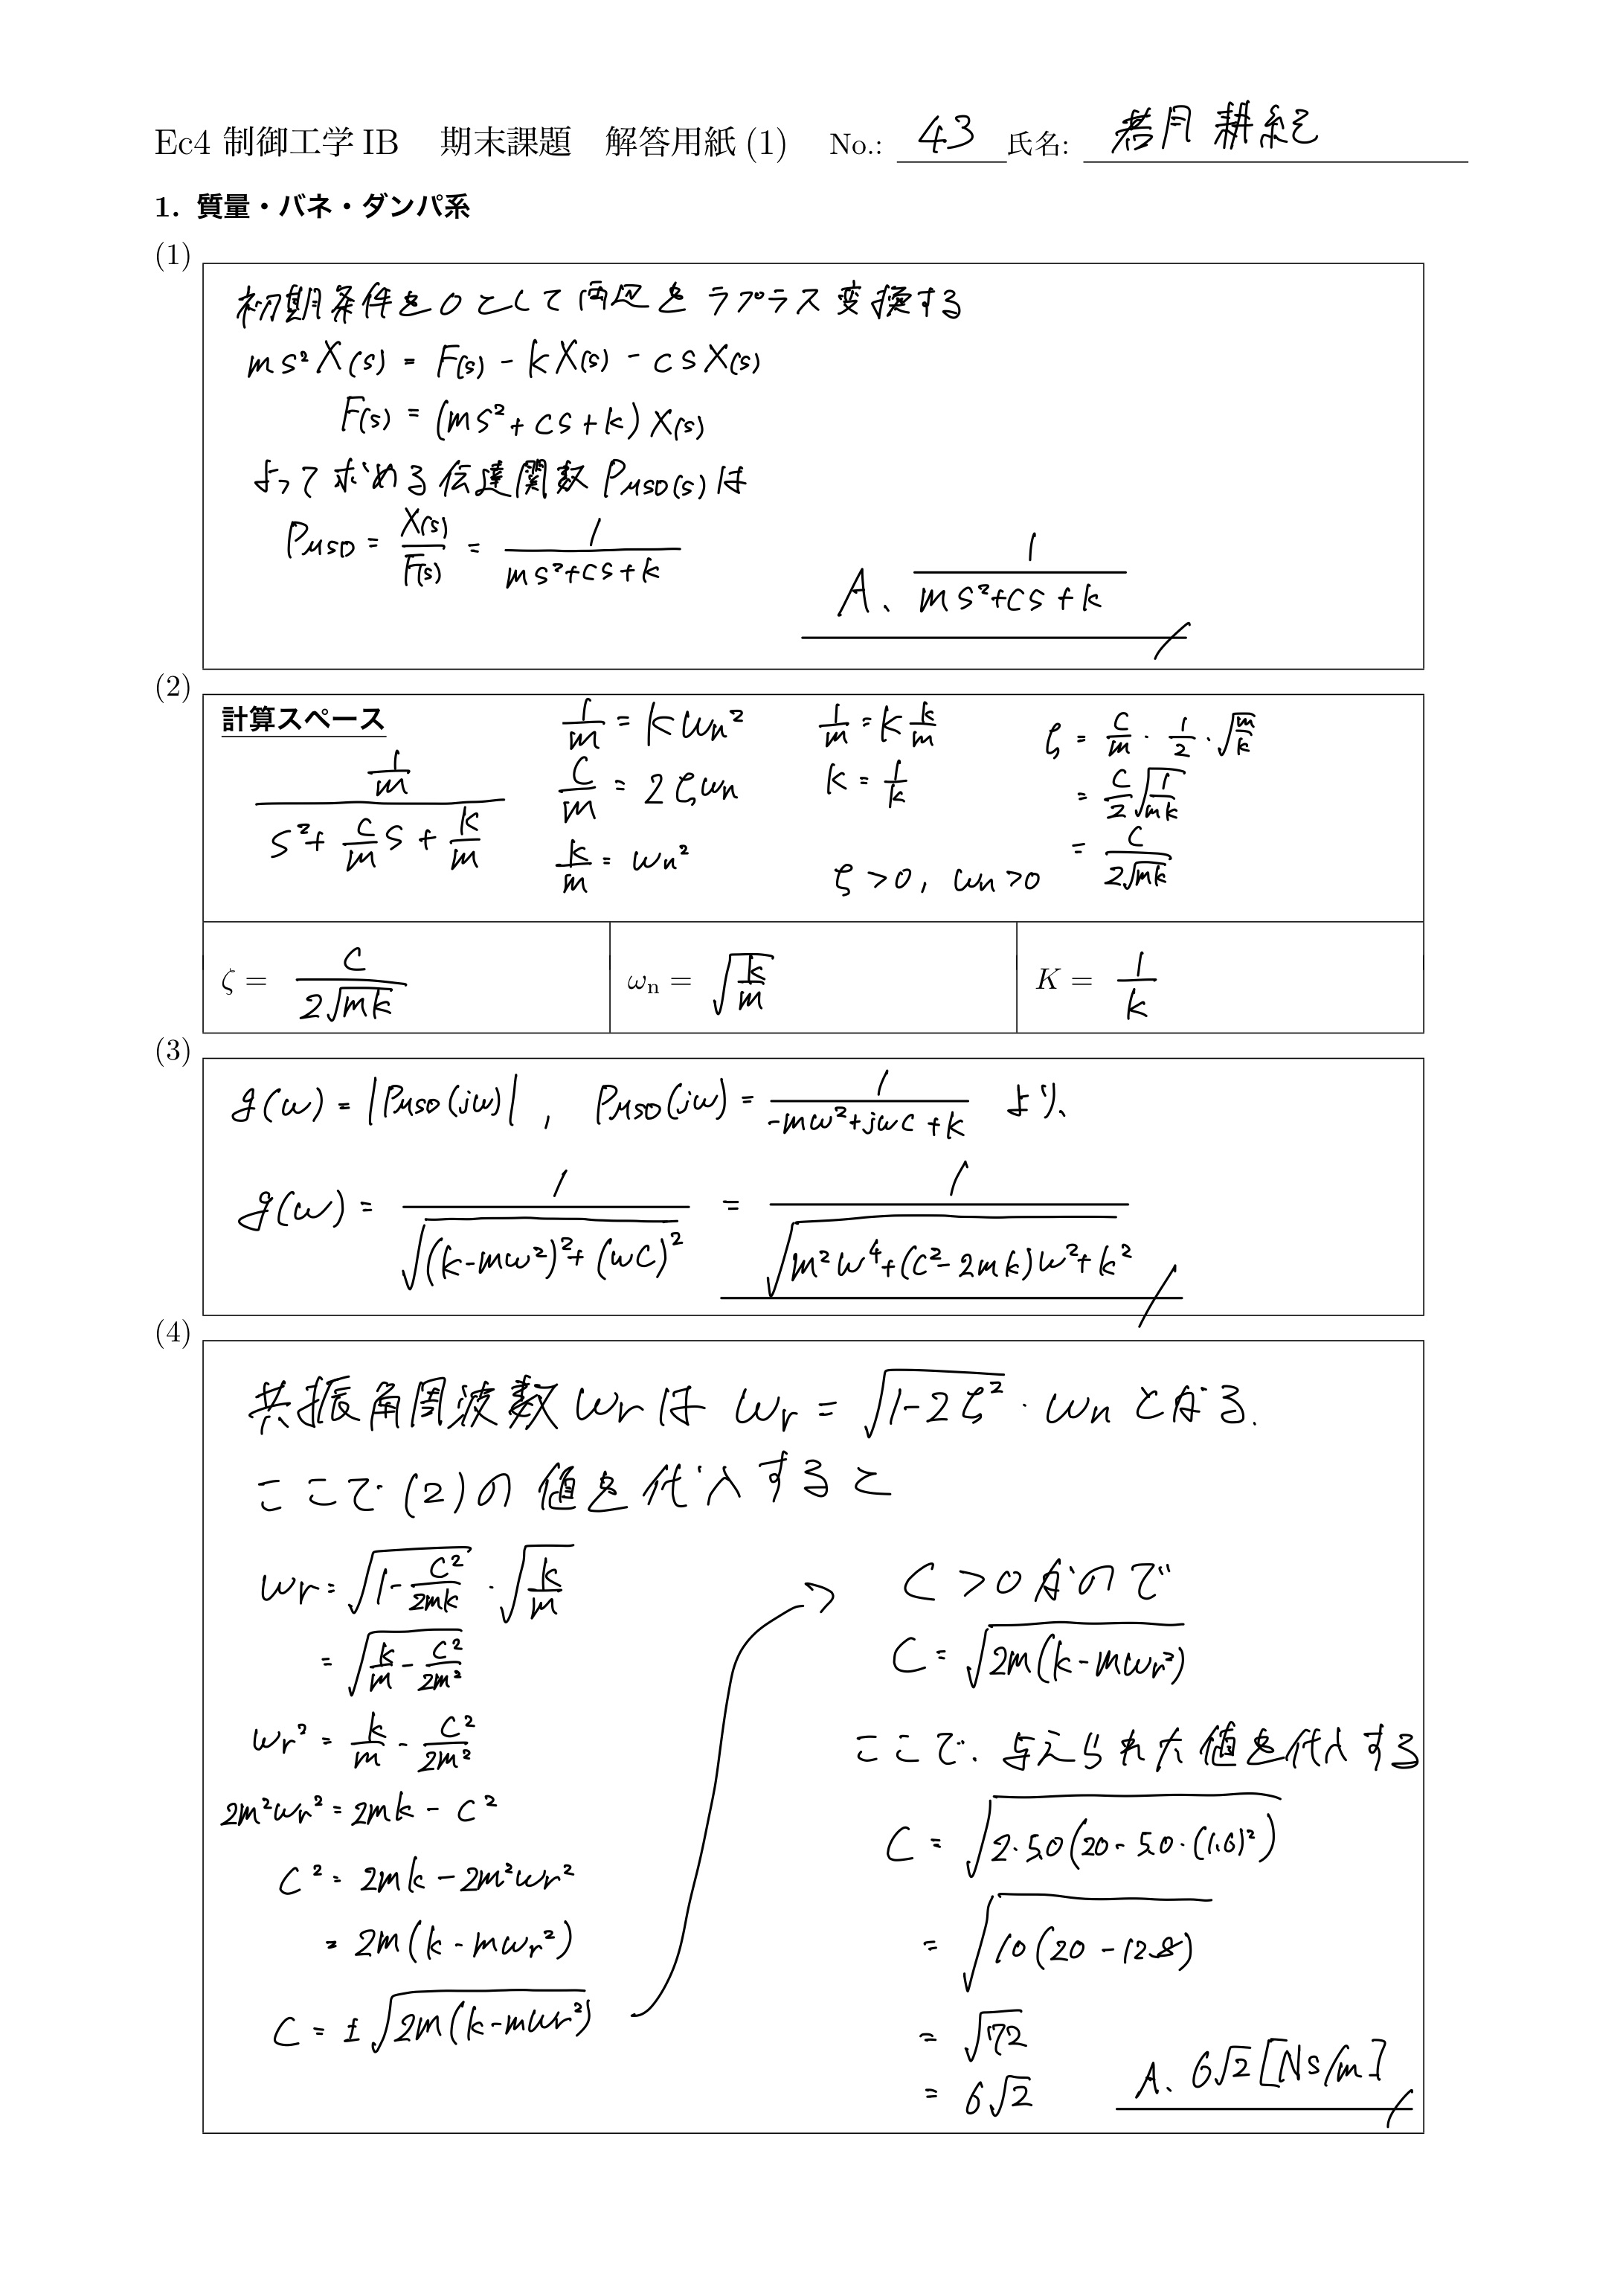 Ec4 制御工学 IB 期末課題 解答用紙 (1) No.: 43 氏名: 若月 耕紀
1. 質量・バネ・ダンパ系
(1)
初期条件を0として両辺をラプラス変換する
ms²X(s) = F(s) - kX(s) - csX(s)
F(s) = (ms²+cs+k)X(s)
よって求める伝達関数 P_MSD(s)は
P_MSD = X(s)/F(s) = 1/(ms²+cs+k)
A、 1/(ms²+cs+k)
(2)
計算スペース
(1/m)/(s²+(c/m)s+k/m)
1/m = Kωn²
c/m = 2ζωn
k/m = ωn²
1/m = K k/m
K = 1/k
ζ>0, ωn>0
ζ = c/m · 1/2 · √(m/k)
= c/2 √(1/mk)
= c/(2√mk)
ζ = c/(2√mk)
ωn = √(k/m)
K = 1/k
(3)
g(ω) = |P_MSD(jω)| , P_MSD(jω) = 1/(-mω²+jωc+k) より、
g(ω) = 1/√((k-mω²)²+(ωc)²) = 1/√(m²ω⁴+(c²-2mk)ω²+k²)
(4)
共振角周波数ωrは ωr = √(1-2ζ²) · ωn となる.
ここで(2)の値を代入すると
ωr = √(1-c²/2mk) · √(k/m)
= √(k/m - c²/2m²)
ωr² = k/m - c²/2m²
2m²ωr² = 2mk - c²
c² = 2mk - 2m²ωr²
= 2m(k-mωr²)
c = ±√(2m(k-mωr²))
c>0なので
c = √(2m(k-mωr²))
ここで、与えられた値を代入する
c = √(2·5.0(20-5.0·(1.6)²))
= √(10(20-12.8))
= √72
= 6√2
A、6√2[Ns/m]